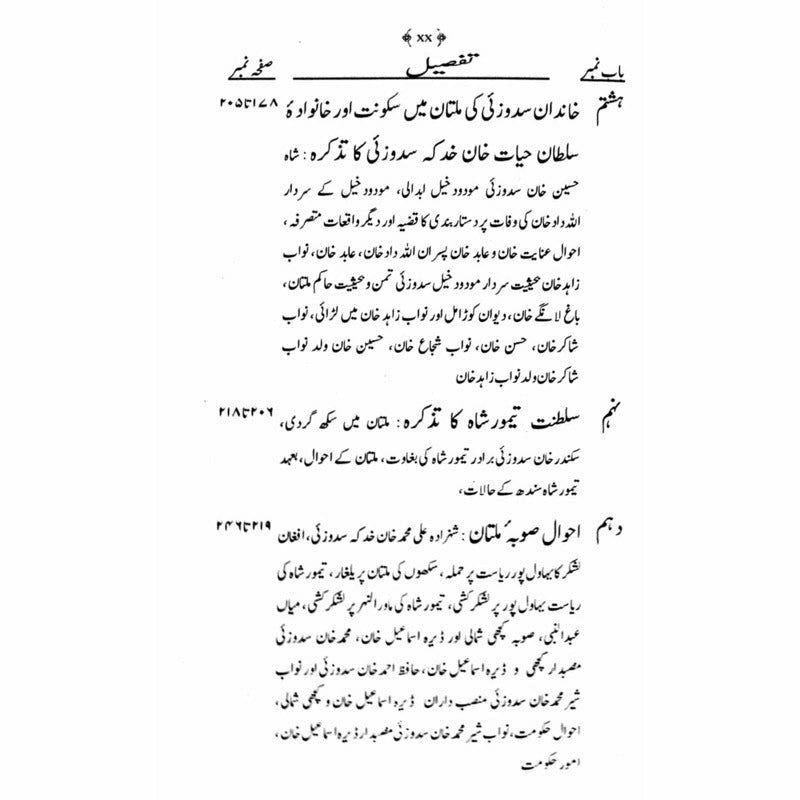 ﴿ xx ﴾
باب نمبر تفصیل صفحہ نمبر
ہشتم خاندان سدوزئی کی ملتان میں سکونت اور خانوادۂ ۱۷۸ تا ۲۰۵
سلطان حیات خان خدکہ سدوزئی کا تذکرہ : شاہ
حسین خان سدوزئی مودود خیل ابدالی، مودود خیل کے سردار
اللہ داد خان کی وفات پر دستار بندی کا قضیہ اور دیگر واقعات متصرفہ ،
احوال عنایت خان و عابد خان پسران اللہ داد خان ، عابد خان، نواب
زاہد خان بحیثیت سردار مودود خیل سدوزئی تمن و بحیثیت حاکم ملتان،
باغ لانگے خان، دیوان کوڑا مل اور نواب زاہد خان میں لڑائی، نواب
شاکر خان، حسن خان، نواب شجاع خان، حسین خان ولد نواب
شاکر خان ولد نواب زاہد خان
نہم سلطنت تیمور شاہ کا تذکرہ : ملتان میں سکھ گردی، ۲۰۶ تا ۲۱۸
سکندر خان سدوزئی برادر تیمور شاہ کی بغاوت، ملتان کے احوال، بعہد
تیمور شاہ سندھ کے حالات،
دہم احوال صوبۂ ملتان : شہزادہ علی محمد خان خدکہ سدوزئی، افغان ۲۱۹ تا ۲۴۶
لشکر کا بہاول پور ریاست پر حملہ ، سکھوں کی ملتان پر یلغار ، تیمور شاہ کی
ریاست بہاول پور پر لشکر کشی، تیمور شاہ کی ماورالنہر پر لشکر کشی، میاں
عبدالنبی، صوبہ کچھی شمالی اور ڈیرہ اسماعیل خان، محمد خان سدوزئی
منصبدار کچھی و ڈیرہ اسماعیل خان، حافظ احمد خان سدوزئی اور نواب
شیر محمد خان سدوزئی منصب داران ڈیرہ اسماعیل خان و کچھی شمالی،
احوال حکومت، نواب شیر محمد خان سدوزئی منصبدار ڈیرہ اسماعیل خان،
امور حکومت